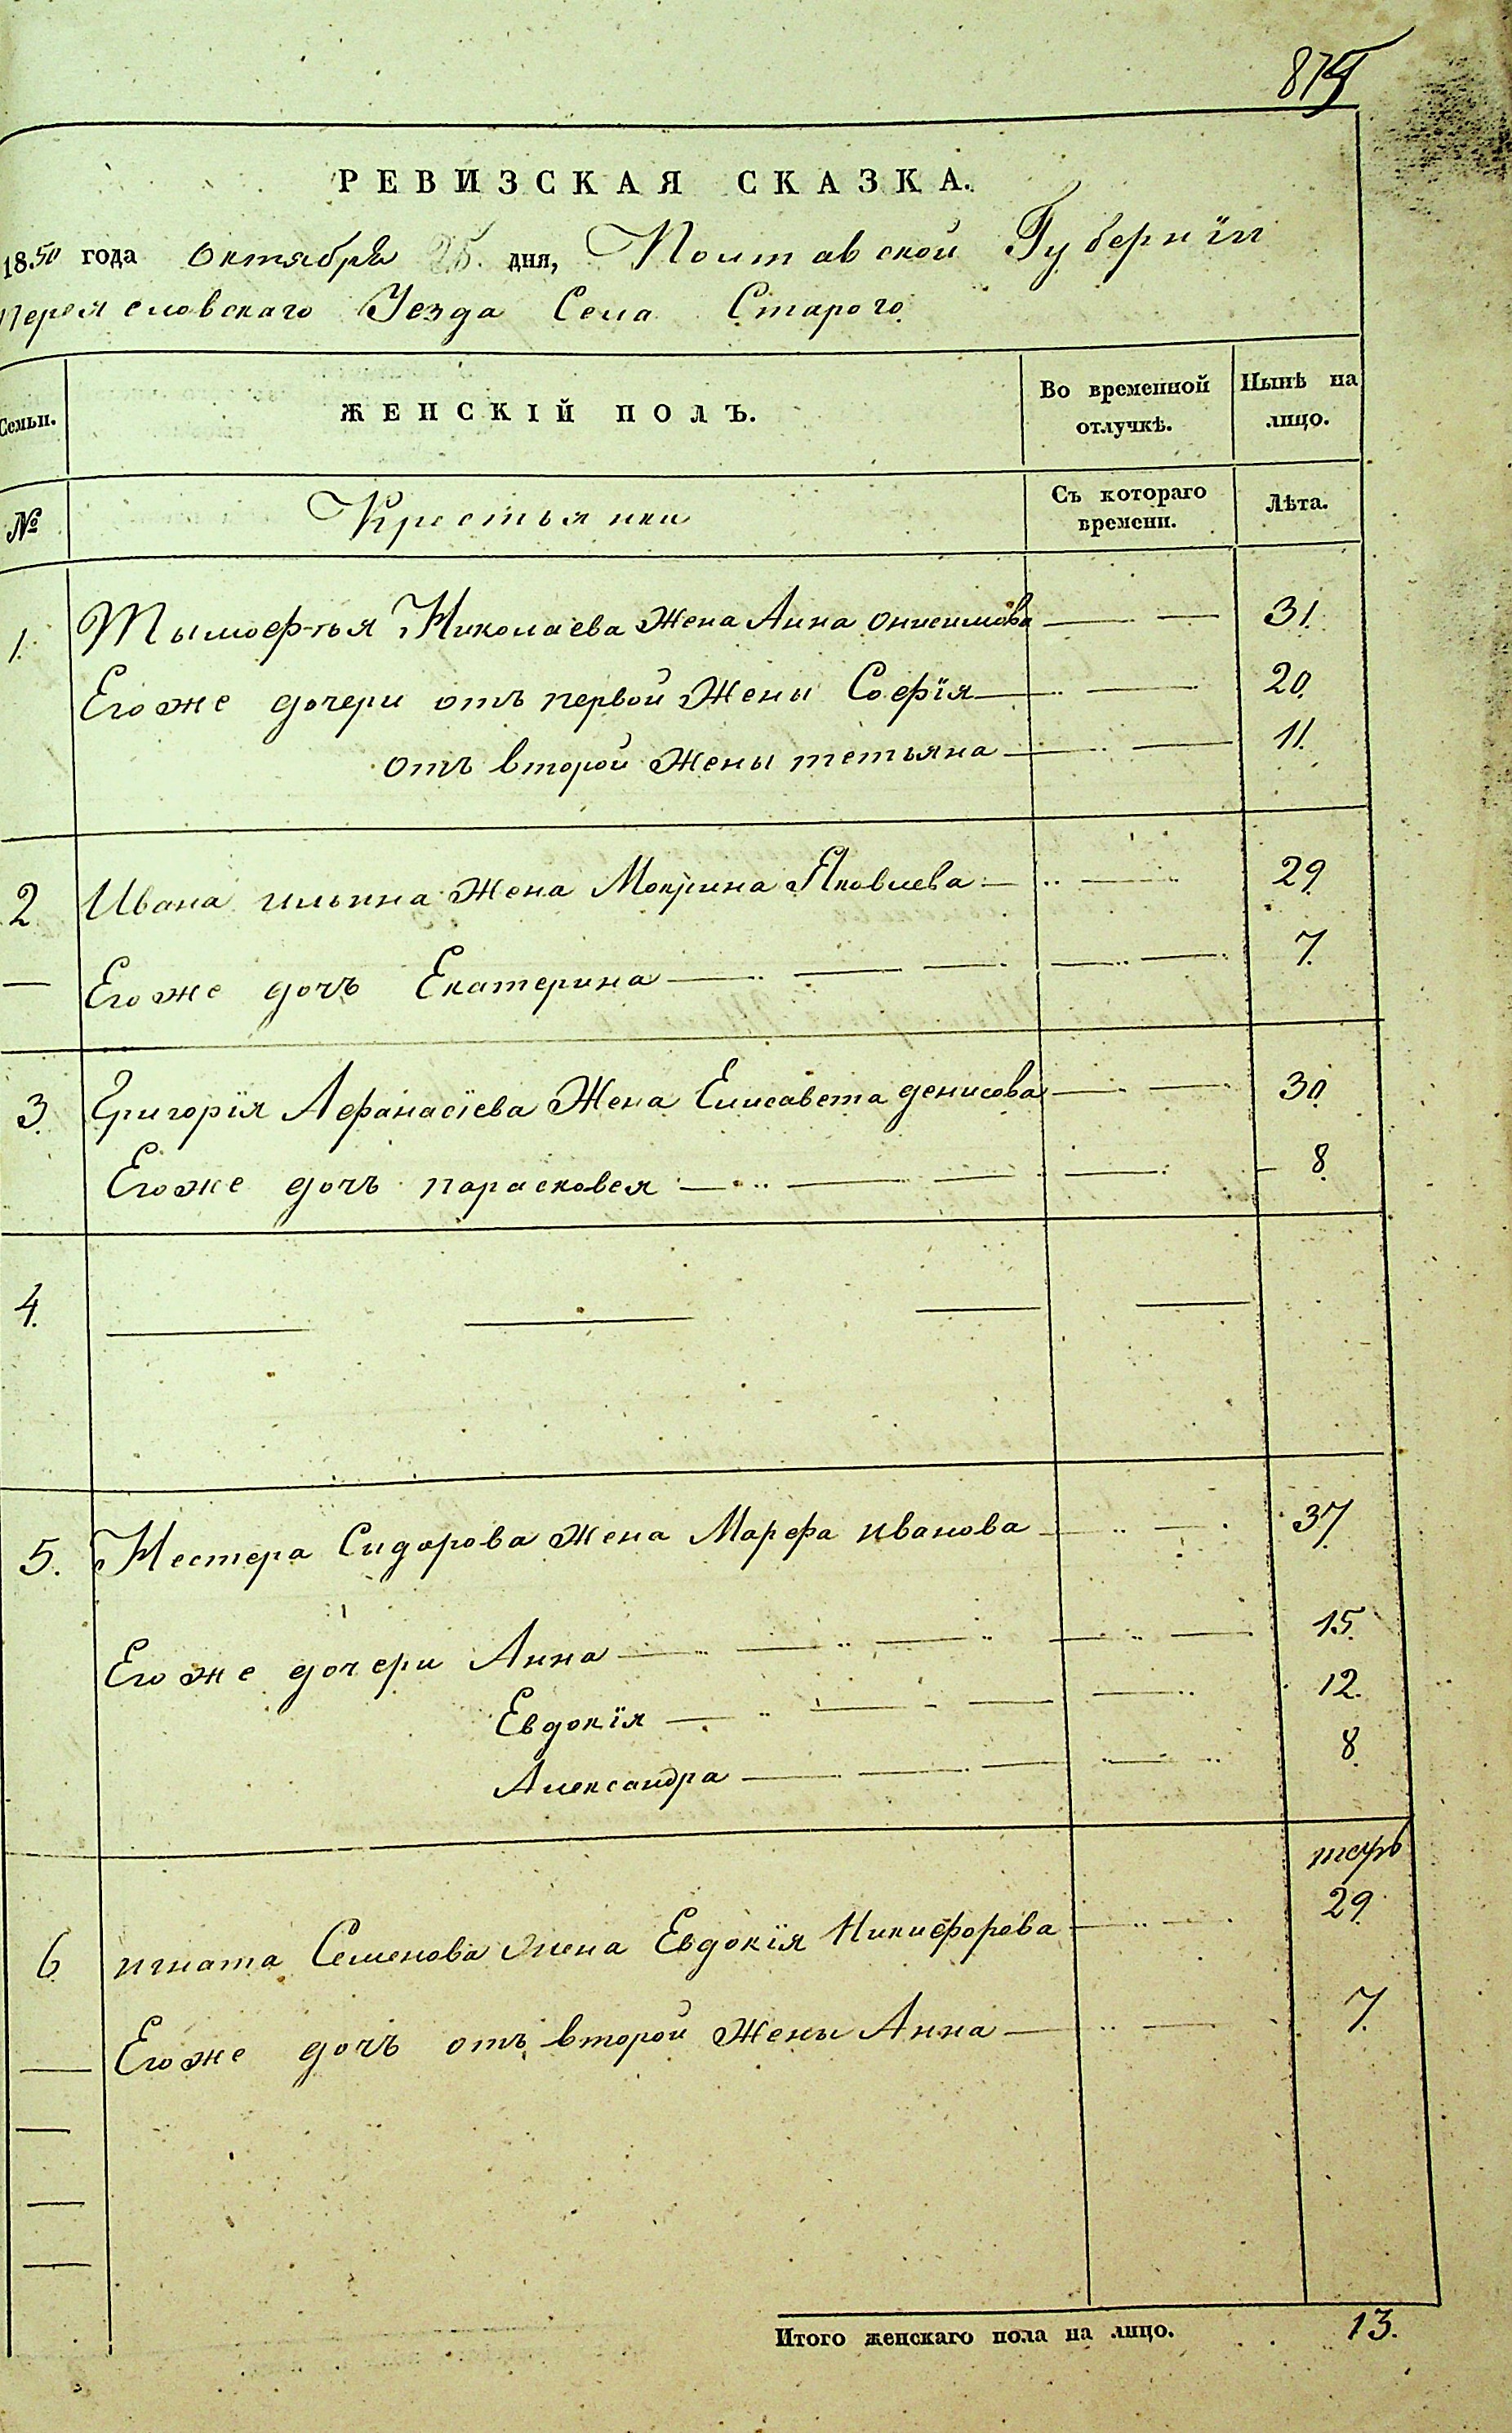 РЕВИЗСКАЯ СКАЗКА.
1850 года октября 25. дня, Полтавской Губернїи
Переясловскаго Уезда Села Старого
Семьи. ЖЕНСКІЙ ПОЛЪ. Во временной отлучкѣ. Нынѣ на лицо.
№ Крестьянки Съ котораго времени. Лѣта.
1. Тымофѣя Николаева Жена Анна онисимова 31.
Его же дочери отъ первой Жены Софїя 20.
отъ второй Жены тетьяна 11.
2 Ивана ильина Жена Мокрина Яковлева 29.
Его же дочъ Екатерина 7.
3. Григорїя Афанасїева Жена Елисавета денисова 30.
Его же дочъ парасковея 8.
4.
5. Нестера Сидорова Жена Марфа иванова 37.
Его же дочери Анна 15.
Евдокїя 12.
Александра 8.
6. игната Семенова жена Евдокїя Никифорова 29.
Его же дочъ отъ второй Жены Анна 7.
Итого женскаго пола на лицо. 13.